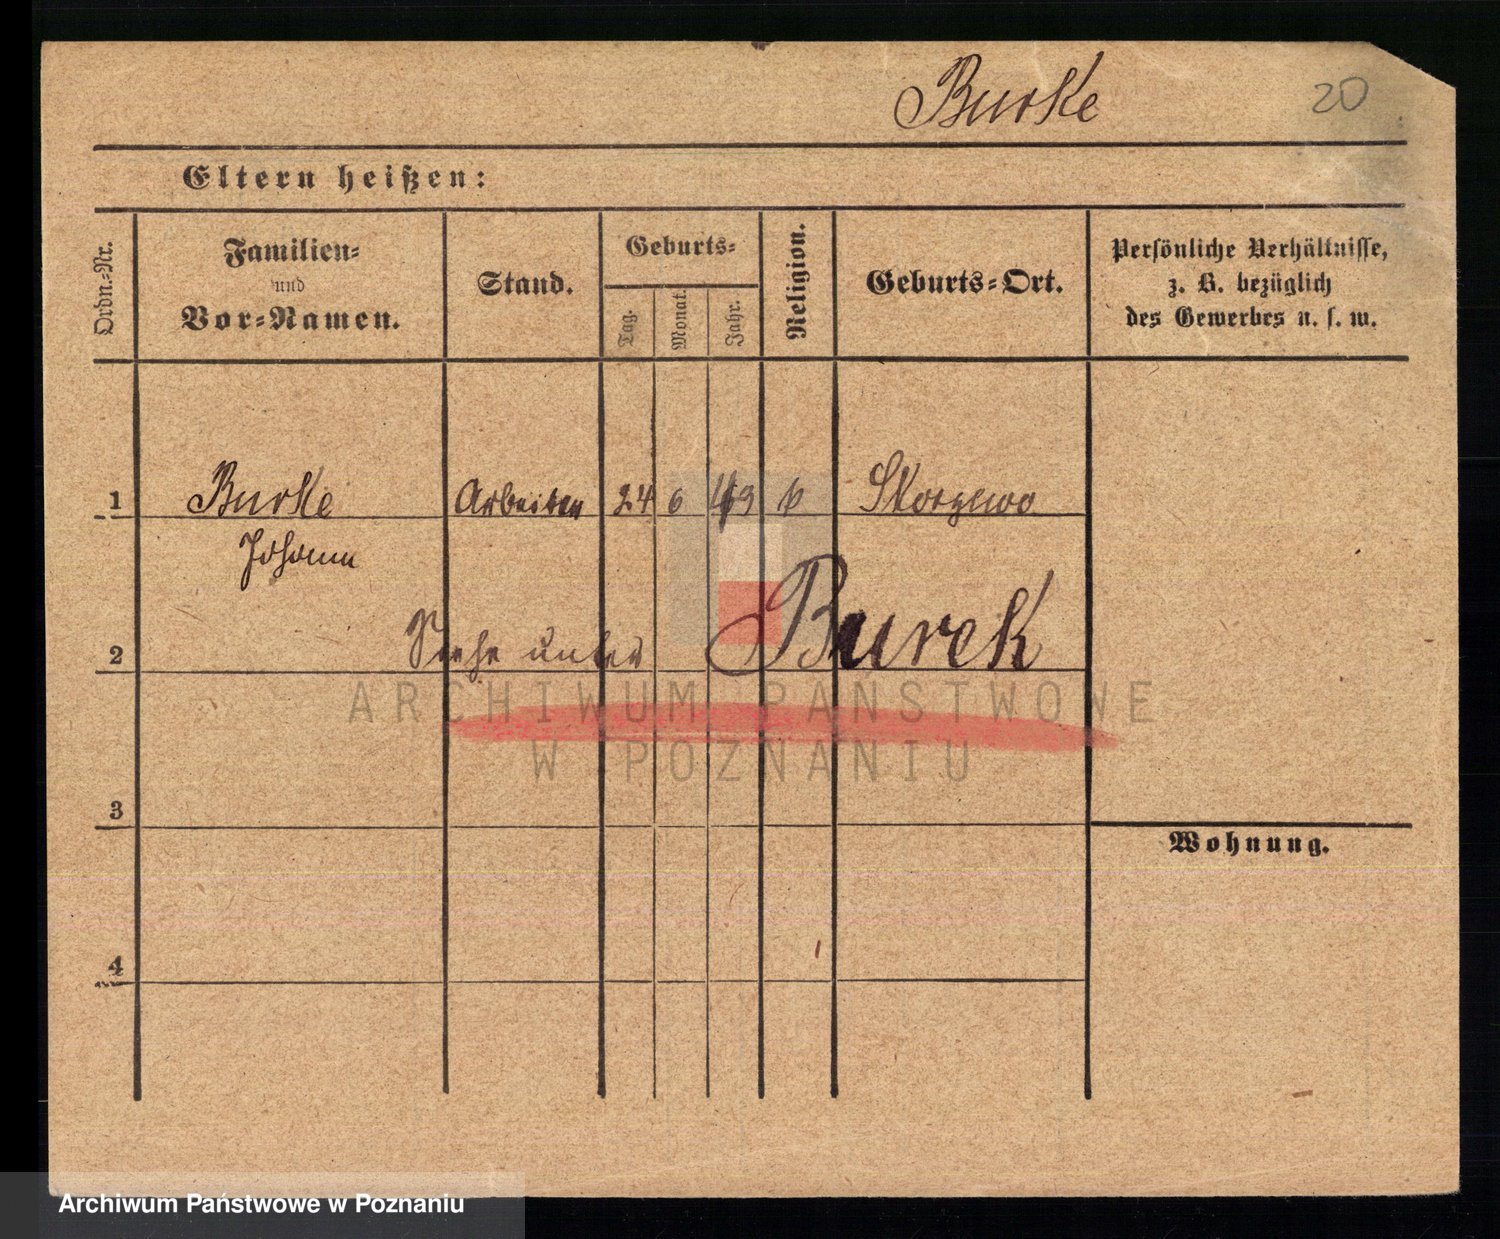 Burke
20
Eltern heißen:
Ordn.-Nr.
Familien-
und
Vor-Namen.
Stand.
Geburts-
Tag.
Monat.
Jahr.
Religion.
Geburts-Ort.
Persönliche Verhältnisse,
z. B. bezüglich
des Gewerbes u. s. w.
1 Burke Arbeiter 24 6 Skorzewo
Johann
2 Siehe unter Burek
ARCHIWUM PAŃSTWOWE
W POZNANIU
3
Wohnung.
4
Archiwum Państwowe w Poznaniu